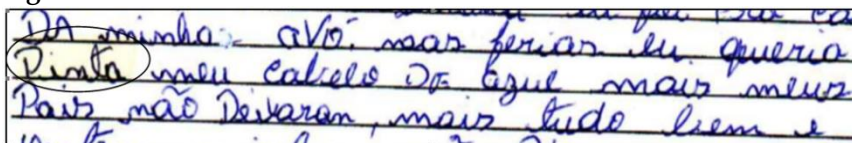 DA minha avó. nas ferias eu queria
Pinta meu cabelo DE azul mais meus
Pais não Deixaran, mais tudo bem e